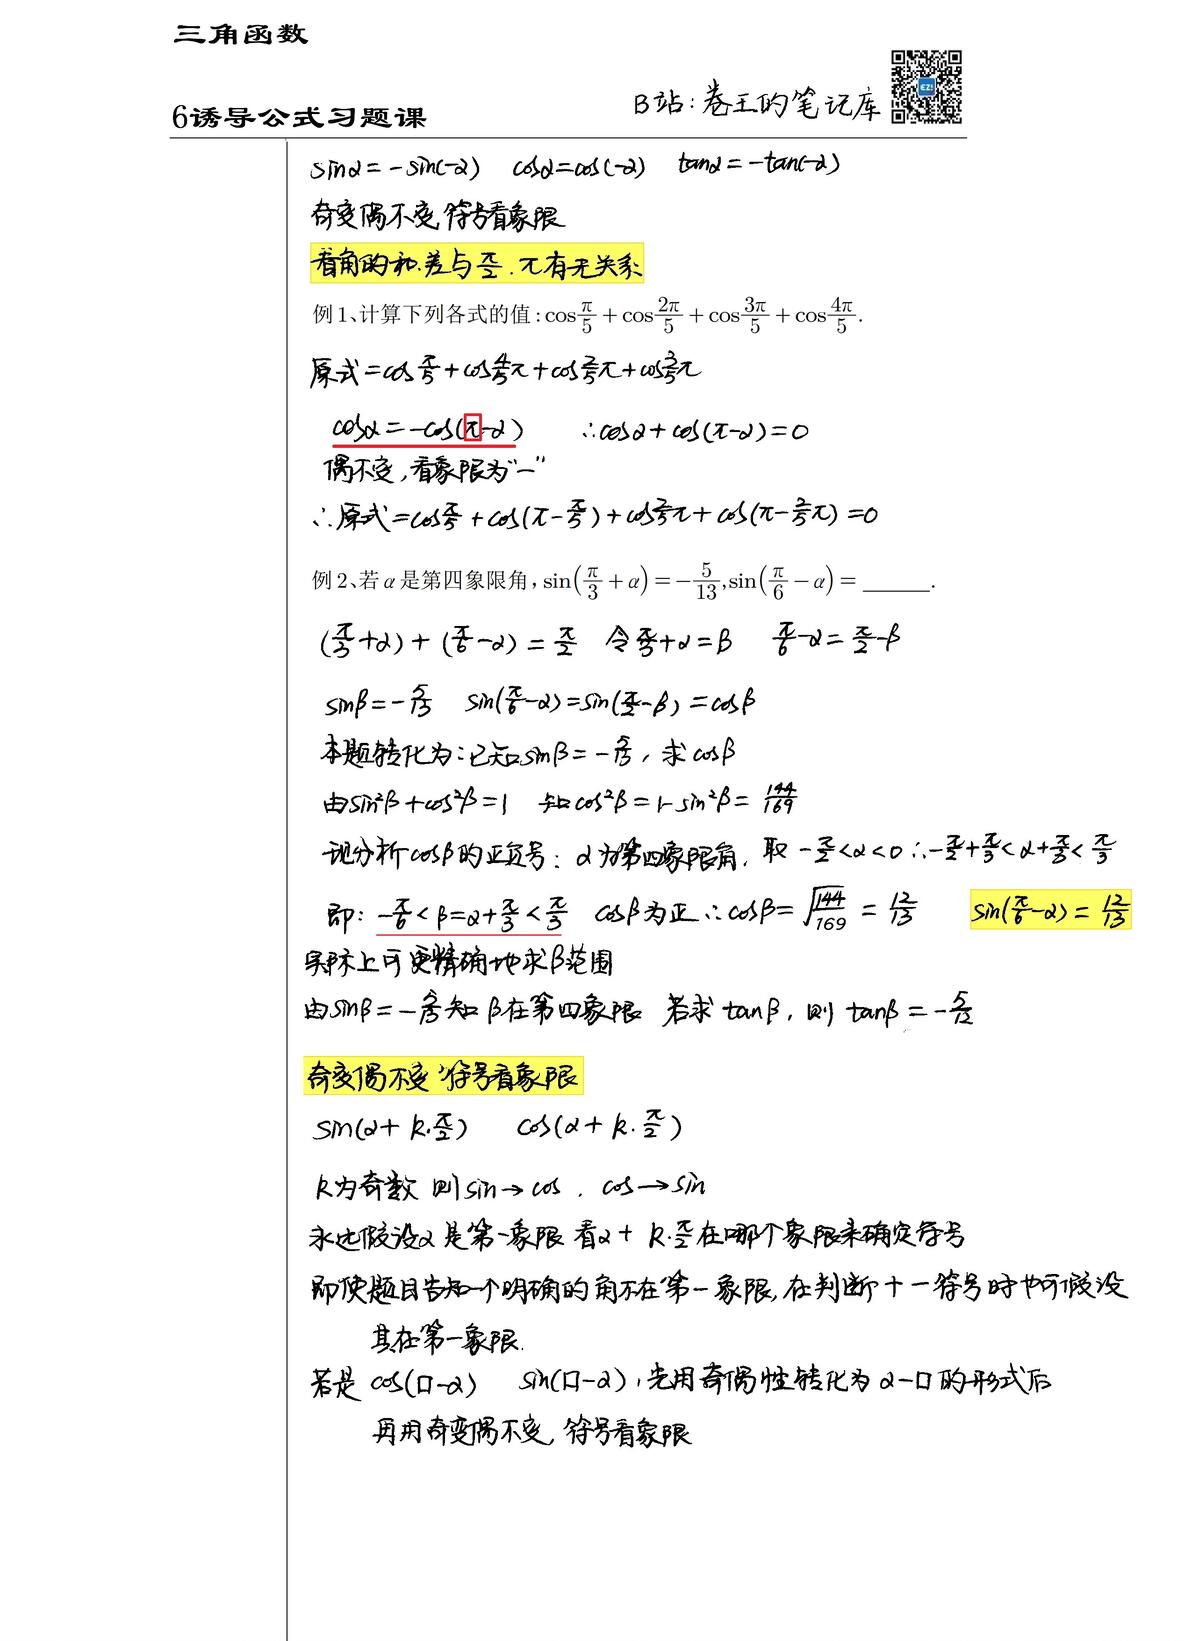 三角函数
6诱导公式习题课
B站:卷王的笔记库
sinα=-sin(-α) cosα=cos(-α) tanα=-tan(-α)
奇变偶不变,符号看象限
看角的和.差与π/2.π有无关系
例1、计算下列各式的值:cosπ/5+cos2π/5+cos3π/5+cos4π/5.
原式=cosπ/5+cos4/5π+cos2/5π+cos3/5π
cosα=-cos(π-α) ∴cosα+cos(π-α)=0
偶不变,看象限为"-"
∴原式=cosπ/5+cos(π-π/5)+cos2/5π+cos(π-2/5π)=0
例2、若α是第四象限角,sin(π/3+α)=-5/13,sin(π/6-α)=______.
(π/3+α)+(π/6-α)=π/2 令π/3+α=β π/6-α=π/2-β
sinβ=-5/13 sin(π/6-α)=sin(π/2-β)=cosβ
本题转化为:已知sinβ=-5/13,求cosβ
由sin²β+cos²β=1 知cos²β=1-sin²β=144/169
现分析cosβ的正负号:α为第四象限角,取-π/2<α<0∴-π/2+π/3<α+π/3<π/3
即:-π/6<β=α+π/3<π/3 cosβ为正∴cosβ=√144/169=12/13 sin(π/6-α)=12/13
实际上可更精确地求β范围
由sinβ=-5/13知β在第四象限 若求tanβ,则tanβ=-5/12
奇变偶不变,符号看象限
sin(α+k·π/2) cos(α+k·π/2)
k为奇数 则sin→cos,cos→sin
永远假设α是第一象限 看α+k·π/2在哪个象限来确定符号
即使题目告知一个明确的角不在第一象限,在判断+-符号时也可假设
其在第一象限.
若是cos(口-α) sin(口-α),先用奇偶性转化为α-口的形式后
再用奇变偶不变,符号看象限